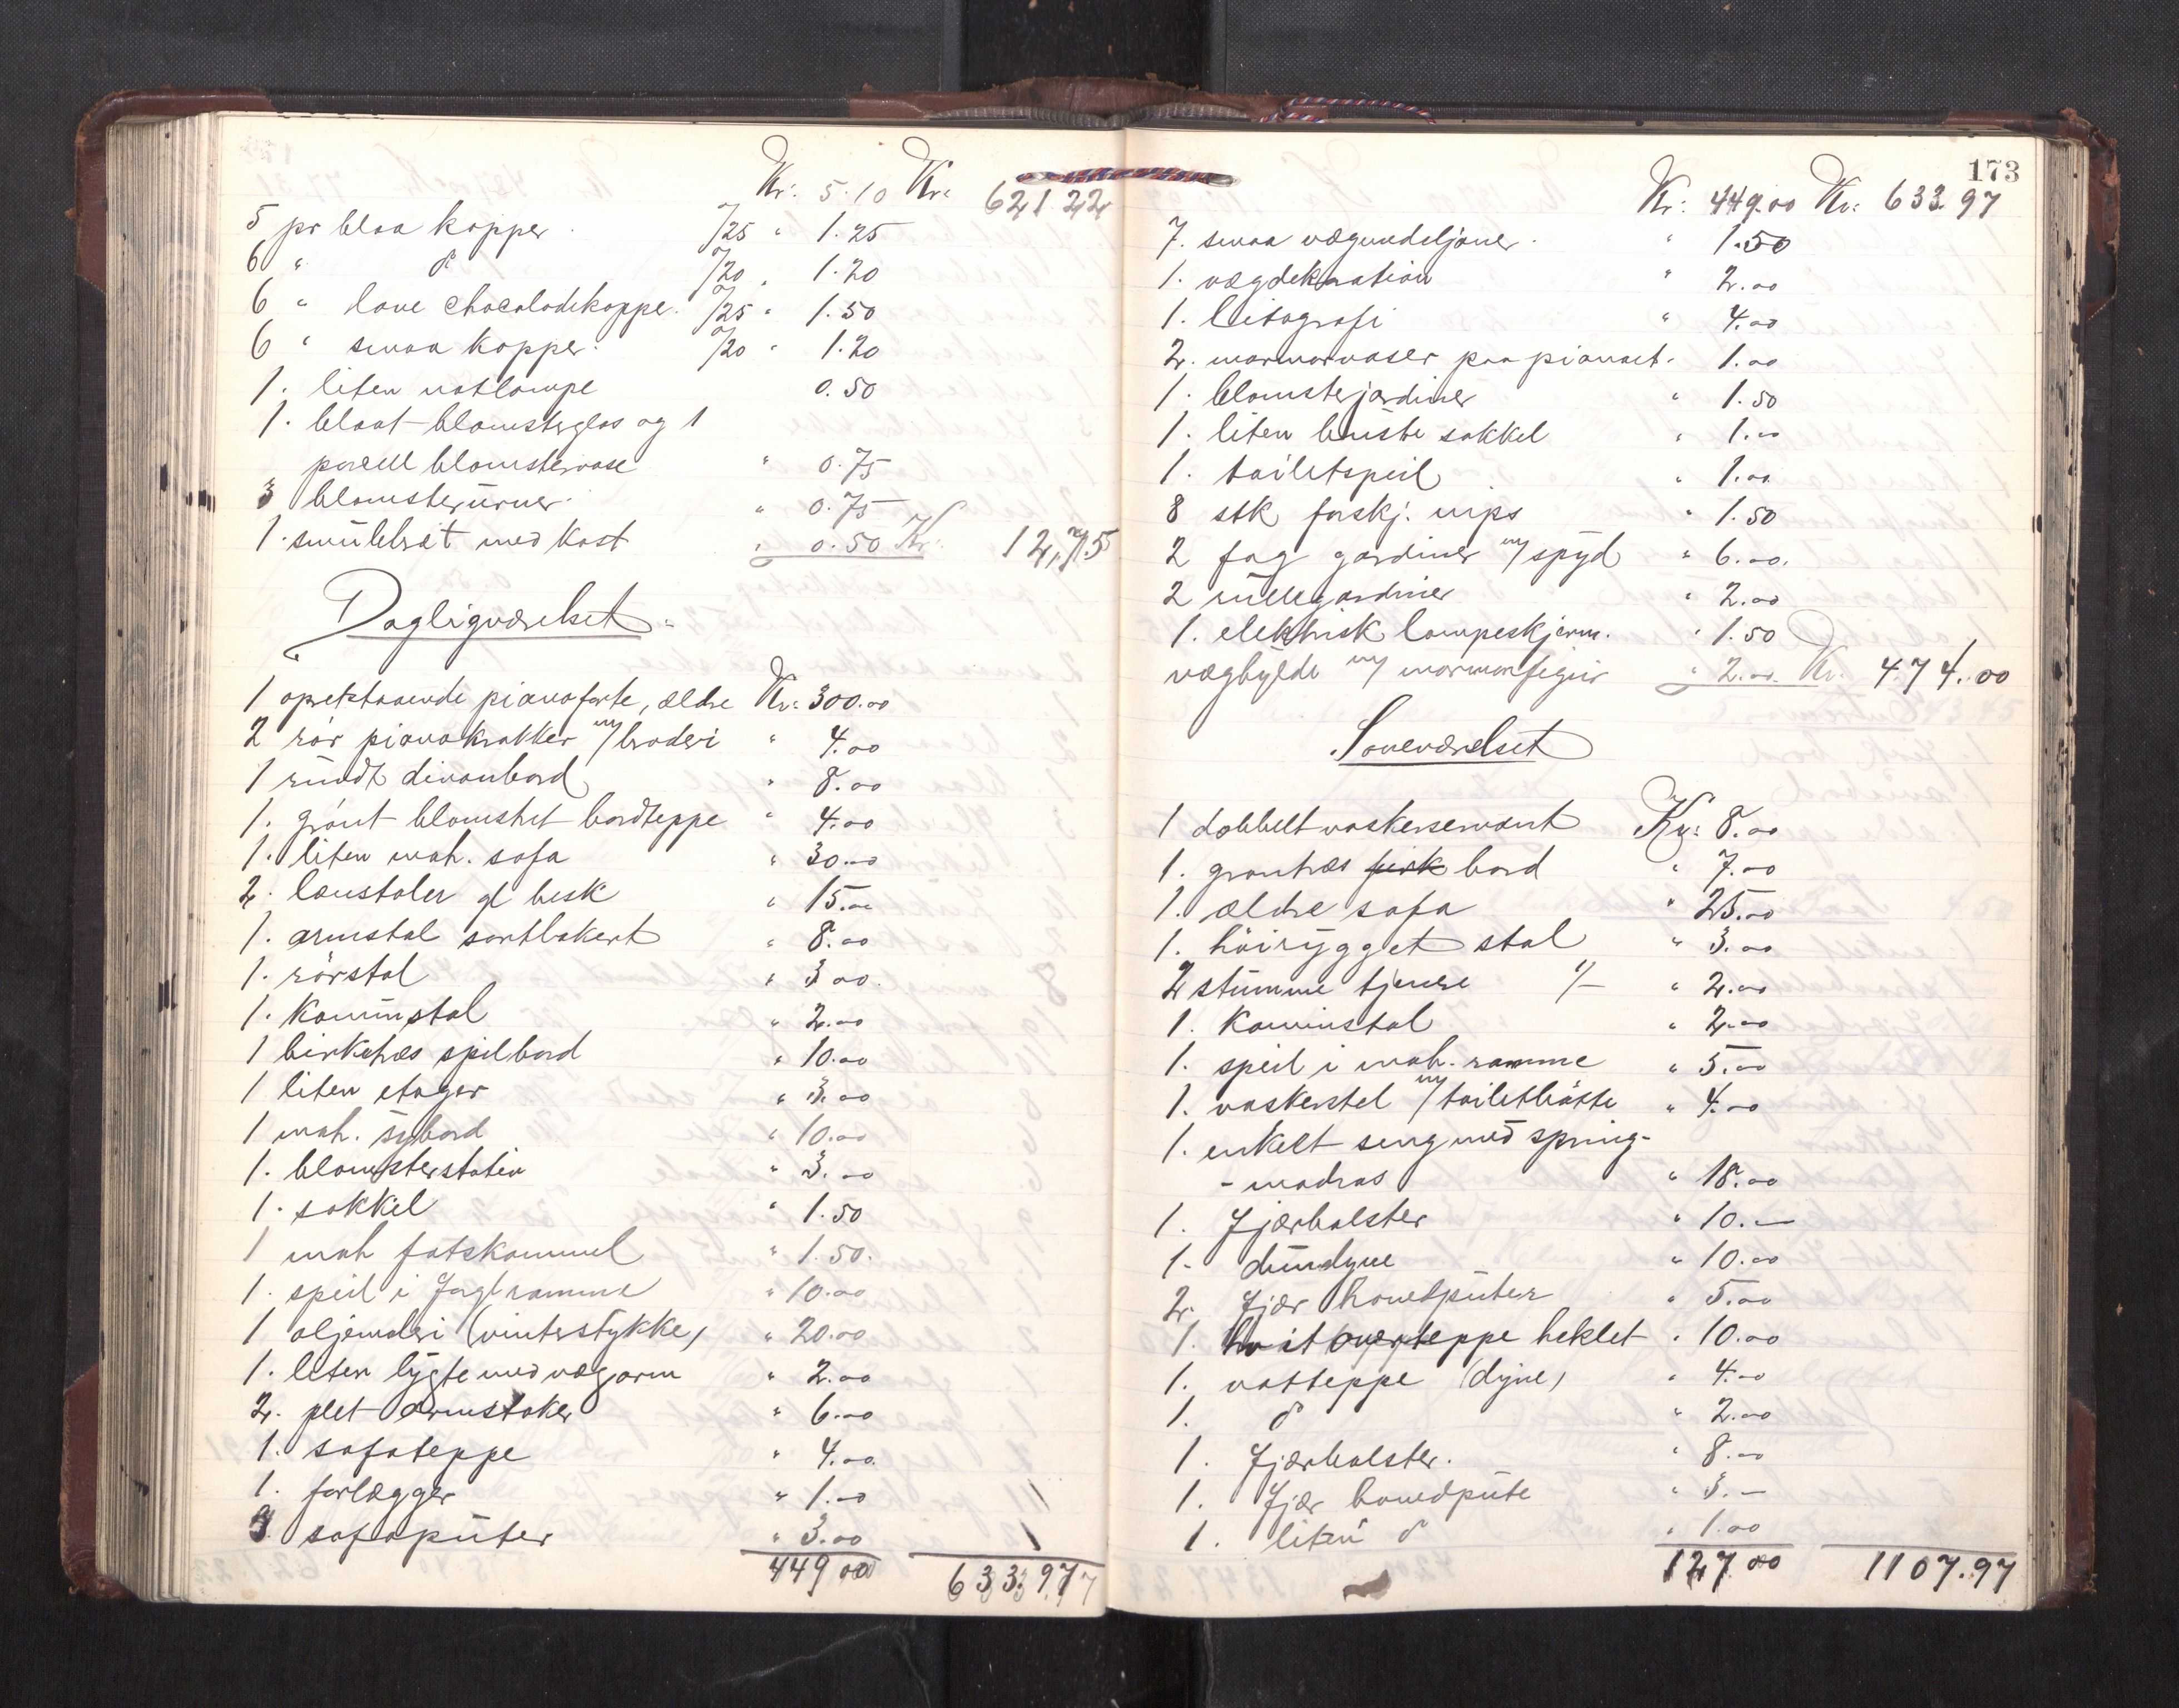 Kr: 5.10 Kr: 621.22
5 pr blaa kopper à/25 " 1.25
6 " do à/20 " 1.20
6 " lave chocoladekopper à/25 " 1.50
6 " smaa kopper à/20 " 1.20
1. liten natlampe 0.50
1. blaat blomsterglas og 1
porcell blomstervase " 0.75
3 blomsterurner " 0.75
1. smulebræt med kost " 0.50 Kr. 12,75
Dagligværelset
1 opretstaaende pianoforte, ældre Kr: 300.00
2 rör pianokrakker m/broderi " 4.00
1 rundt divanbord " 8.00
1. grönt blomstret bordteppe " 4.00
1. liten mah. sofa " 30.00
2. lænstoler gl besk " 15.00
1. armstol sortlakert " 8.00
1. rörstol " 3.00
1. Kaminstol " 2.00
1 birketræs spilbord " 10.00
1 liten etager " 3.00
1 mah. sybord " 10.00
1. blomsterstativ " 3.00
1. sokkel " 1.50
1 mah fotskammel " 1.50
1. speil i forgl ramme " 10.00
1 oljemaleri (vinterstykke) " 20.00
1. liten lygte med vægarm " 2.00
2. plet armstaker " 6.00
1. sofateppe " 4.00
1. forlægger " 1.00
3 sofaputer " 3.00
449 00 633.97
173
Kr: 449.00 Kr: 633.97
7. smaa vægmedeljoner " 1.50
1. vægdekoration " 2.00
1. litografi " 4.00
2. marmorvaser paa pianoet " 1.00
1. blomsterjardiner " 1.50
1. liten buste sokkel " 1.00
1. toiletspeil " 1.00
8 stk forskj. nips " 1.50
2 fag gardiner m/spyd " 6.00
2 rullegardiner " 2.00
1. elektrisk lampeskjerm " 1.50
væghylde m/ marmorfigur " 2.00 Kr. 474.00
Soveværelset
1 dobbelt vaskeservant Kr: 8.00
1. grantræs firk bord " 7.00
1. ældre sofa " 25.00
1. höirygget stol " 3.00
2 stumme tjenere 1/- " 2.00
1. Kaminstol " 2.00
1. speil i mah. ramme " 5.00
1. vaskestel m/toiletbötte " 4.00
1. enkelt seng med spring-
- madras " 18.00
1. fjærbolster " 10.-
1- dundyne " 10.00
2. fjær hovedputer " 5.00
1. hvit overteppe heklet " 10.00
1. vatteppe (dyne) " 4.00
1. do " 2.00
1. fjærbolster. " 8.00
1. fjær hovedpute " 3.-
1. liten do " 1.00
127 00 1107.97